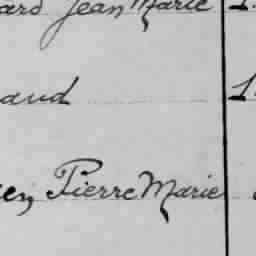 ard Jean Marie
aud
en, Pierre Marie